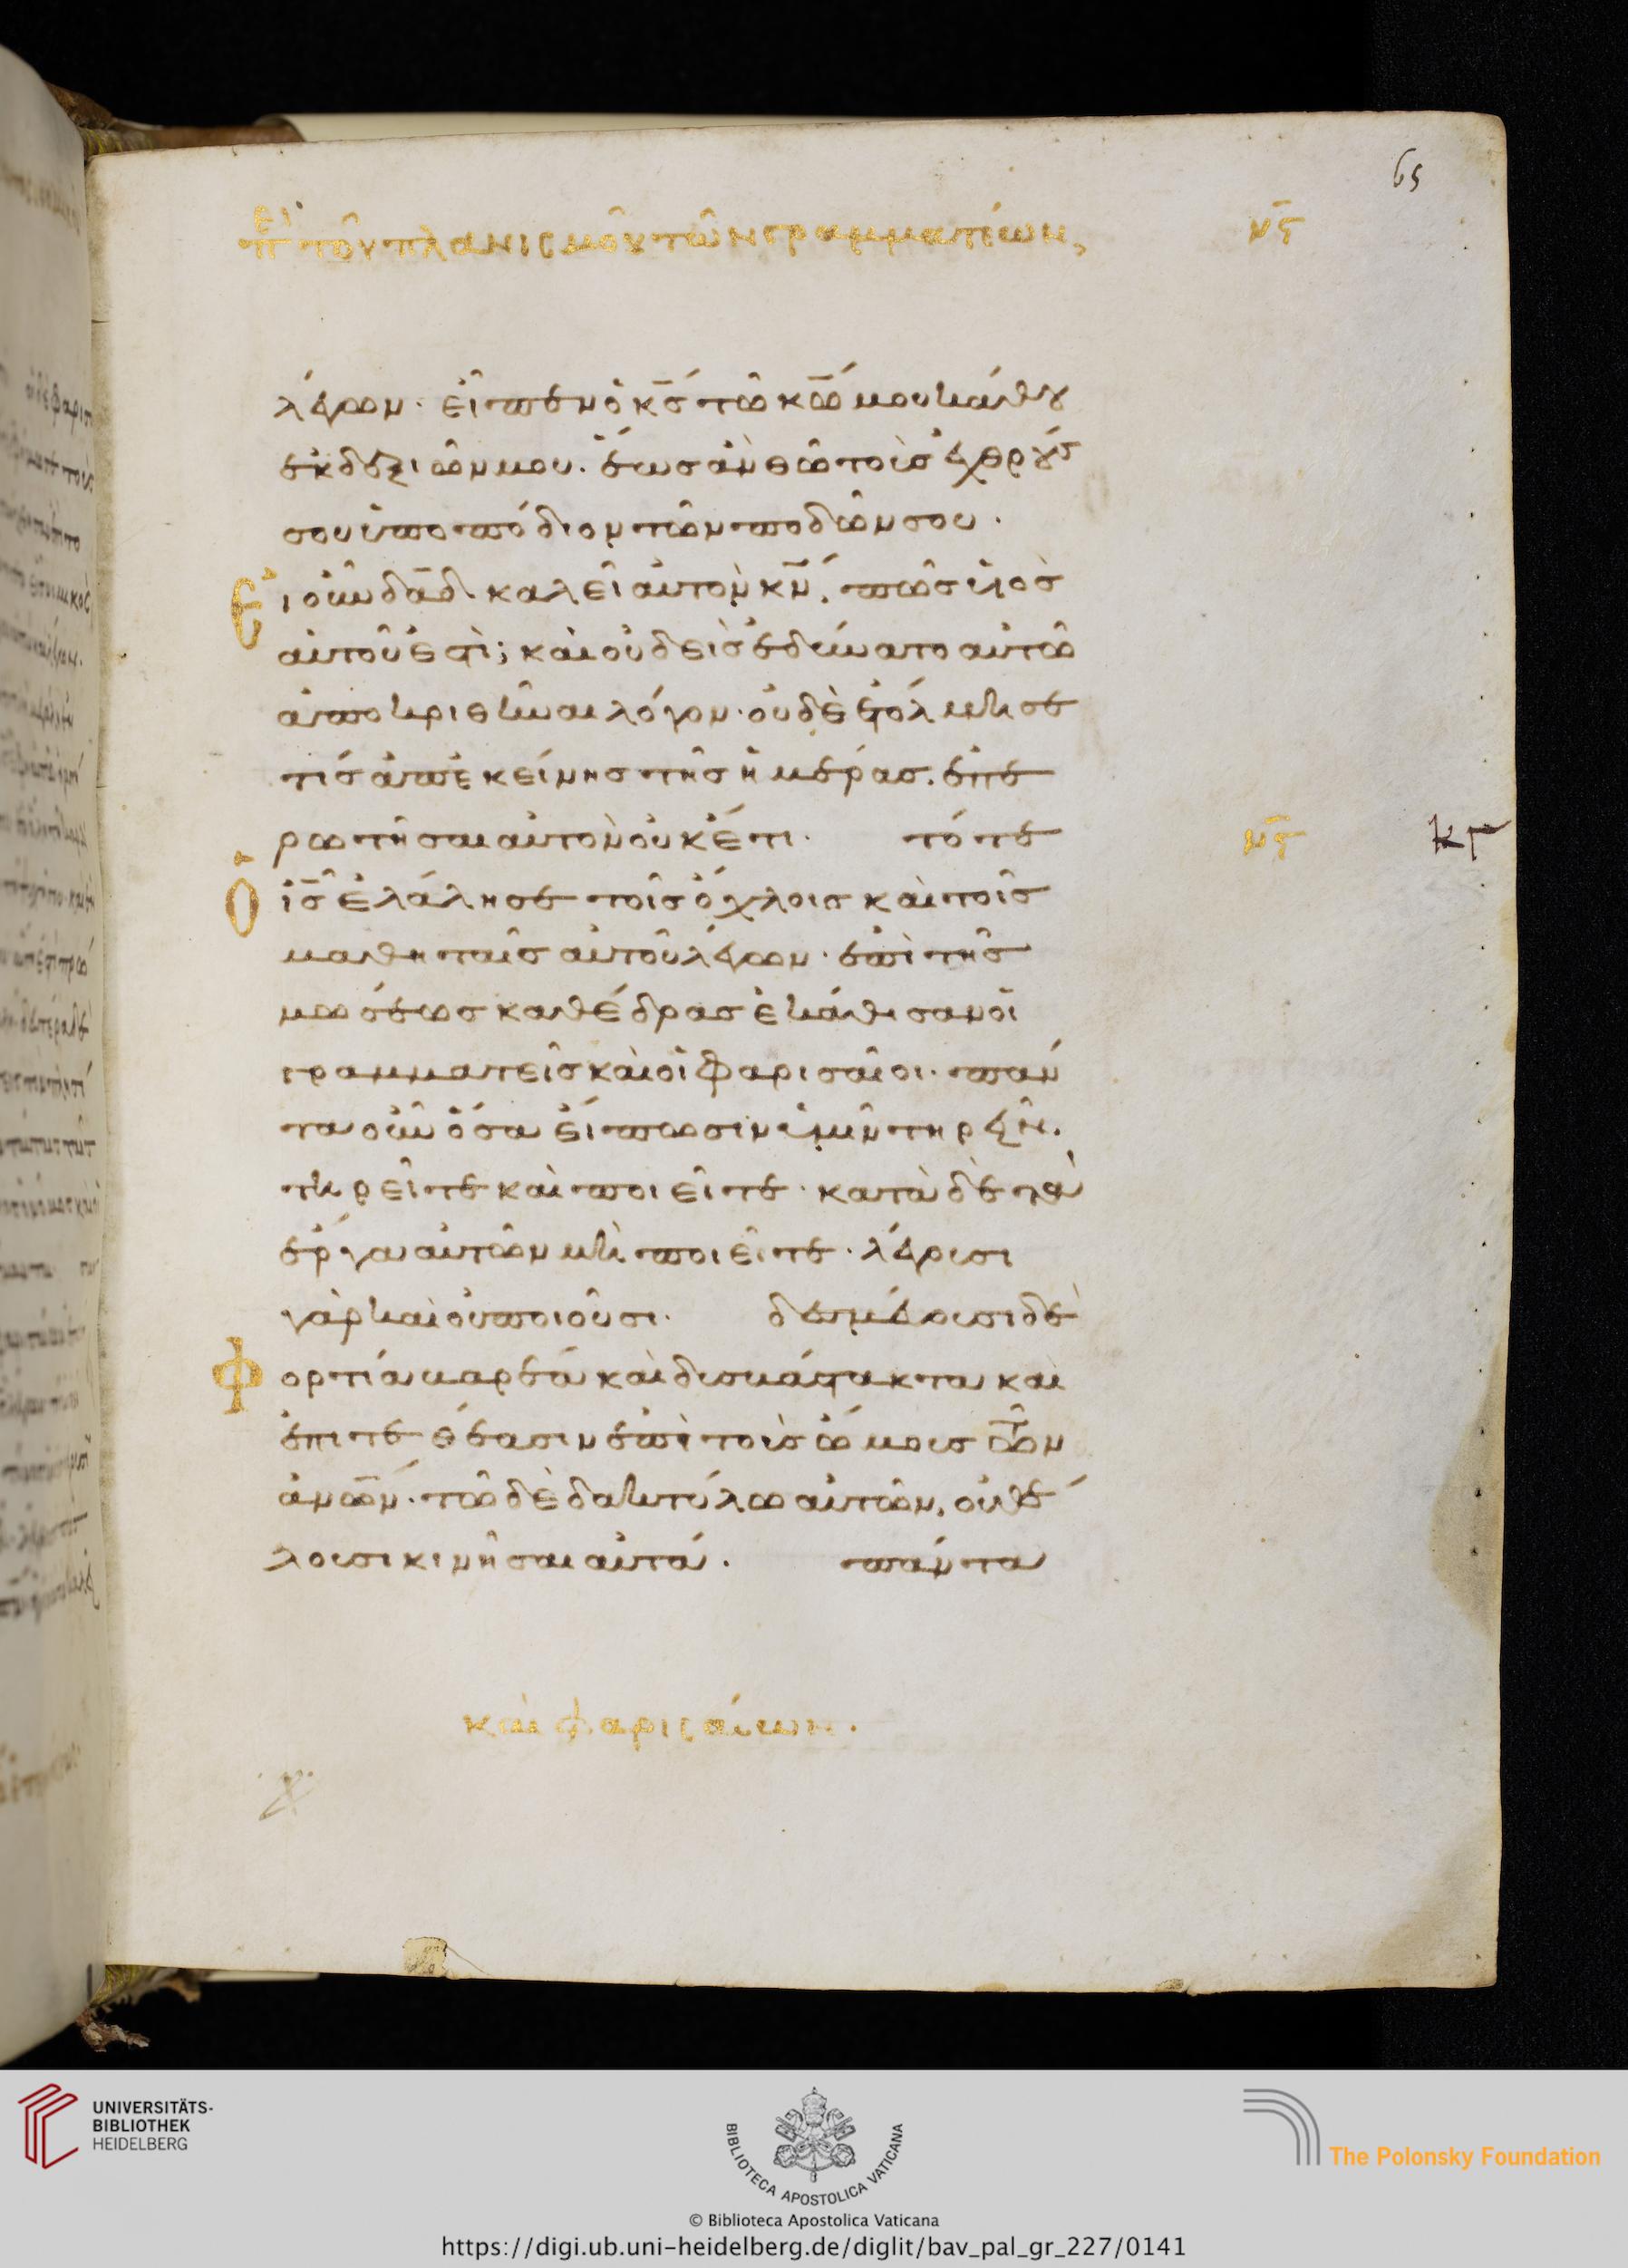 65
πε̣ρὶ τοῦ πλανισμοῦ τῶν γραμματέων, νς̄
λέγων· εἶπεν ὁ κ̅ς̅ τῶ κ̅ω̅ μου κάθου
ἐκ δεξιῶν μου. ἕως ἂν θῶ τοὺς ἐχθρούς
σου ὑποπόδιον τῶν ποδῶν σου.
Εἰ οὖν δ̅α̅δ̅ καλεῖ αὐτὸν κ̅ν̅, πῶς υἱὸς
αὐτοῦ ἐστὶ; καὶ οὐδεὶς ἐδύνατο αὐτῶ
ἀποκριθῆναι λόγον· οὐδὲ ἐτόλμησέ
τίς ἀπ' ἐκείνης τῆς ἡμέρας. ἐπε
ρωτῆσαι αὐτὸν οὐκέτι. τότε νς̄ κγ
Ὁ ι̅ς̅ ἐλάλησε τοῖς ὄχλοις καὶ τοῖς
μαθηταῖς αὐτοῦ λέγων· ἐπὶ τῆς
μωσέως καθέδρας ἐκάθισαν οἱ
γραμματεῖς καὶ οἱ φαρισαῖοι. πάν
τα οὖν ὅσα εἴπωσιν ὑμῖν τηρεῖν.
τηρεῖτε καὶ ποιεῖτε· κατὰ δὲ τὰ
ἔργα αὐτῶν μὴ ποιεῖτε· λέγουσι
γὰρ καὶ οὐ ποιοῦσι. δεσμέουσι δὲ
Φορτία βαρέα καὶ δυσβάστακτα καὶ
ἐπιτεθέασιν ἐπὶ τοὺς ὤμους τῶν
ἀν̅ω̅ν̅· τῶ δὲ δακτύλω αὐτῶν, οὐ θέ
λουσι κινῆσαι αὐτά. πάντα
καὶ φαρισαίων.
UNIVERSITÄTS-
BIBLIOTHEK
HEIDELBERG
BIBLIOTECA APOSTOLICA VATICANA
The Polonsky Foundation
© Biblioteca Apostolica Vaticana
https://digi.ub.uni-heidelberg.de/diglit/bav_pal_gr_227/0141